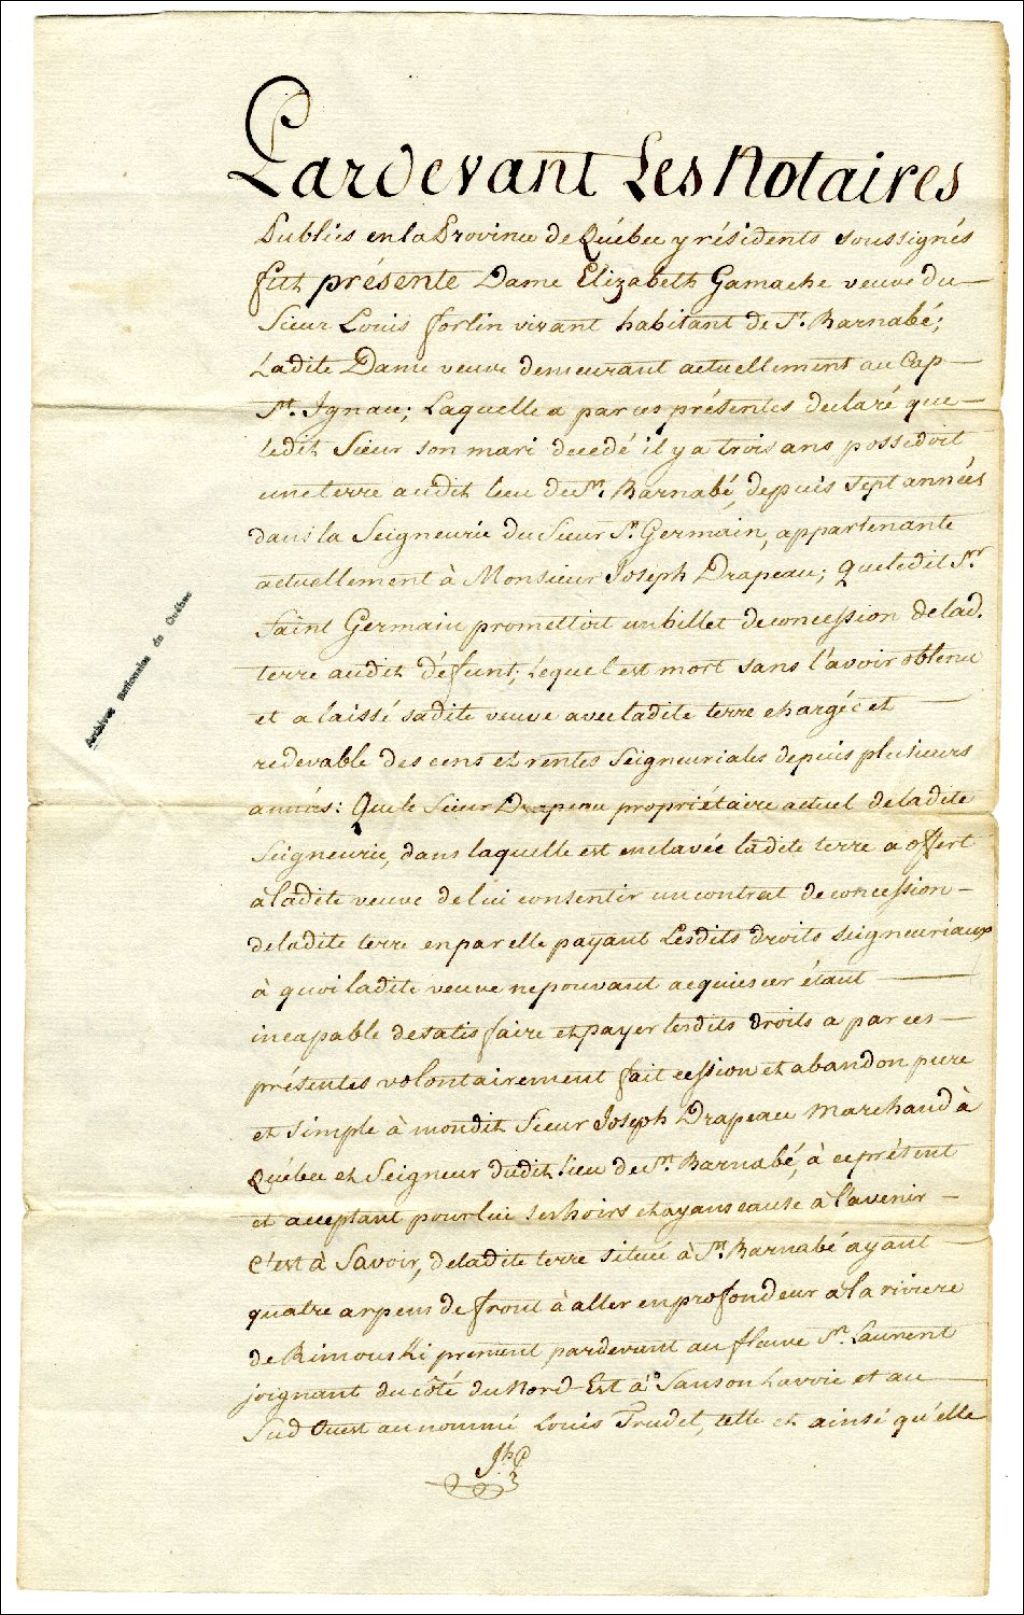 Pardevant Les Notaires
Publics en la Province de Québec y résidents soussignés
fut présente Dame Elizabeth Gamache veuve du
Sieur Louis fortin vivant habitant de St. Barnabé;
Ladite Dame veuve demeurant actuellement au Cap
St. Ignace; Laquelle a par ces présentes declaré que
ledit Sieur son mari decedé il y a trois ans possedoit
une terre audit lieu de St. Barnabé, depuis sept années
dans la Seigneurie du Sieur St. Germain, appartenante
actuellement à Monsieur Joseph Drapeau; Que ledit Sr.
Saint Germain promettoit un billet de concession de lad.
terre audit défunt; Lequel est mort sans l'avoir obtenu
et a laissé sadite veuve avec ladite terre chargée et
redevable des cens et rentes Seigneuriales depuis plusieurs
années: Que le Sieur Drapeau propriétaire actuel de ladite
Seigneurie, dans laquelle est enclavée ladite terre a offert
à ladite veuve de lui consentir un contrat de concession
de ladite terre en par elle payant Lesdits droits seigneuriaux
à quoi ladite veuve ne pouvant acquiescer étant
incapable de satisfaire et payer lesdits droits a par ces
présentes volontairement fait cession et abandon pure
et simple à mondit Sieur Joseph Drapeau Marchand à
Québec et Seigneur dudit lieu de St. Barnabé, à ce présent
et acceptant pour lui ses hoirs et ayans cause à l'avenir
C'est à Savoir, de ladite terre située à St. Barnabé ayant
quatre arpens de front à aller en profondeur à la riviere
de Rimouski prenent pardevant au fleuve St. Laurent
joignant du côté du Nord-Est à Sanson Lavoie et au
Sud Ouest au nommé Louis Trudel, telle et ainsi qu'elle
Archives Nationales de Québec